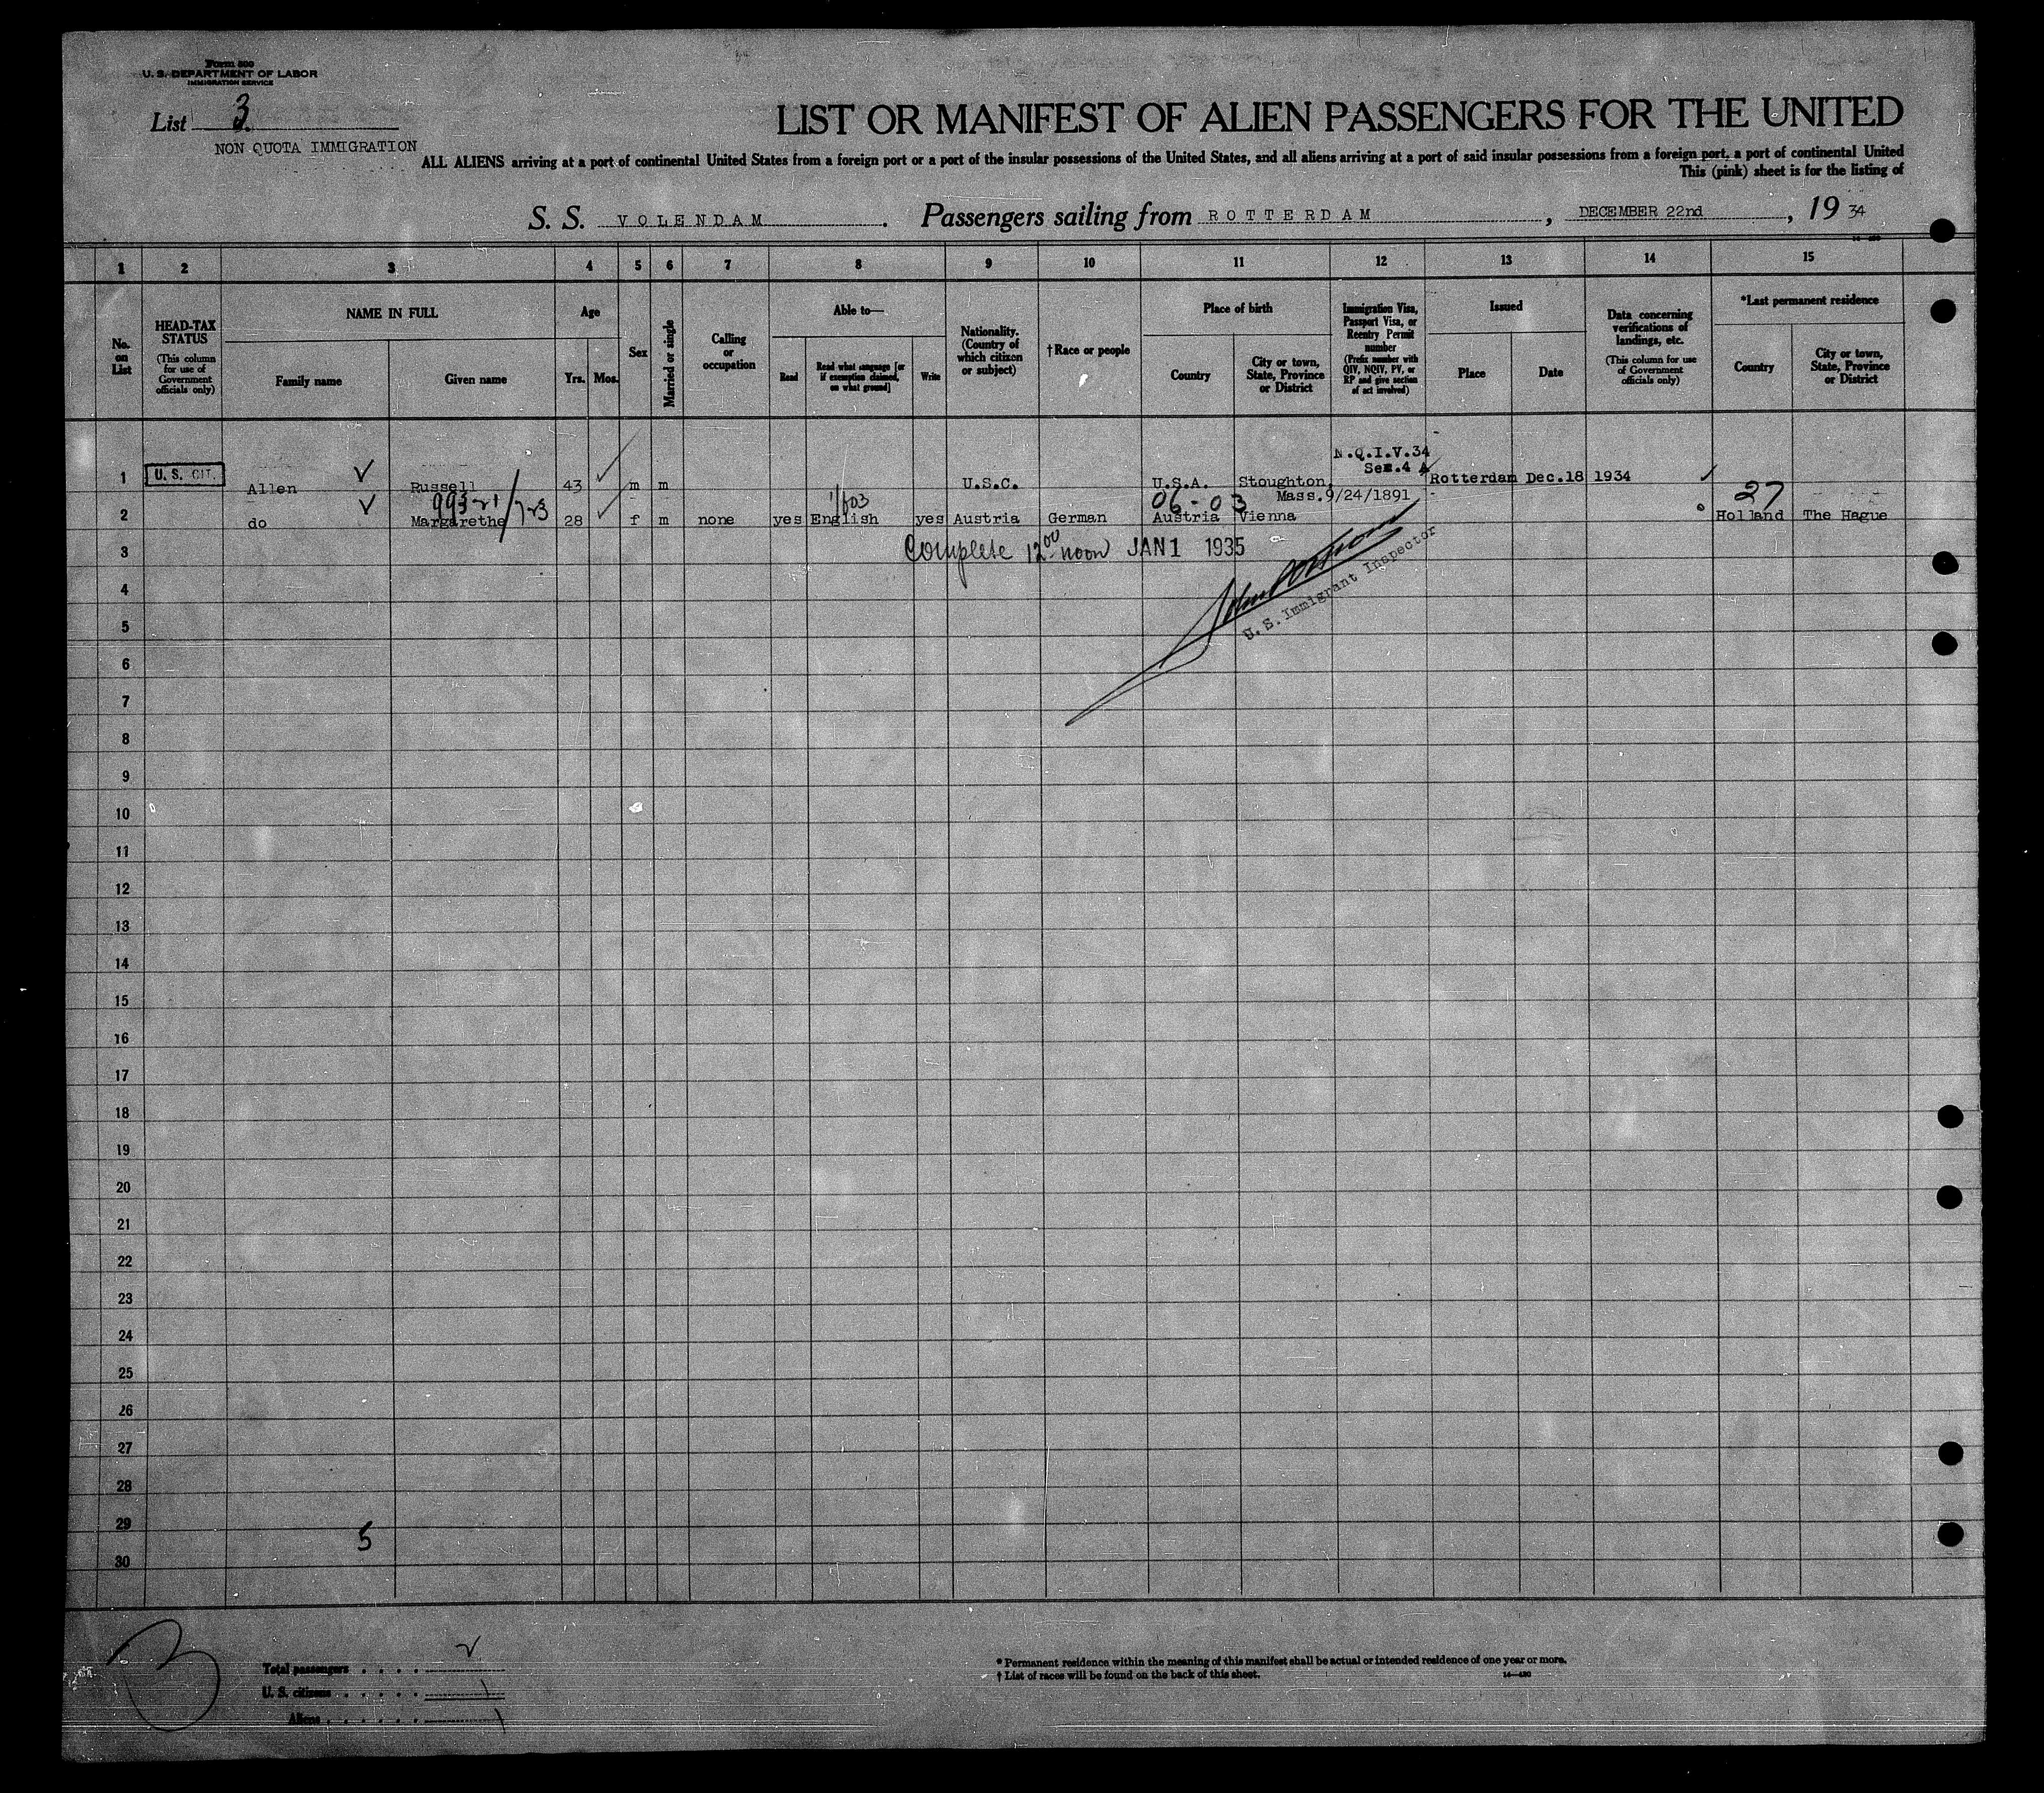 Form 500
U. S. DEPARTMENT OF LABOR
IMMIGRATION SERVICE
List 3.
NON QUOTA IMMIGRATION
LIST OR MANIFEST OF ALIEN PASSENGERS FOR THE UNITED
ALL ALIENS arriving at a port of continental United States from a foreign port or a port of the insular possessions of the United States, and all aliens arriving at a port of said insular possessions from a foreign port, a port of continental United
This (pink) sheet is for the listing of
S. S. VOLENDAM. Passengers sailing from ROTTERDAM, DECEMBER 22nd, 19 34
1 2 3 4 5 6 7 8 9 10 11 12 13 14 15
No. on List
HEAD-TAX STATUS (This column for use of Government officials only)
NAME IN FULL
Family name
Given name
Age
Yrs. Mos.
Sex
Married or single
Calling or occupation
Able to—
Read
Read what language [or if exemption claimed, on what ground]
Write
Nationality. (Country of which citizen or subject)
†Race or people
Place of birth
Country
City or town, State, Province or District
Immigration Visa, Passport Visa, or Reentry Permit number (Prefix number with QIV, NQIV, PV, or RP and give section of act involved)
Issued
Place
Date
Data concerning verifications of landings, etc. (This column for use of Government officials only)
*Last permanent residence
Country
City or town, State, Province or District
N.Q.I.V.34
Sec.4 A
1 U. S. CIT. Allen Russell 43 m m U.S.C. U.S.A. Stoughton, Rotterdam Dec.18 1934
Mass. 9/24/1891
06-03
27
2 do Margarethe 28 f m none yes English yes Austria German Austria Vienna Holland The Hague
3 Complete 12 00 noon JAN 1 1935
U. S. Immigrant Inspector
4
5
6
7
8
9
10
11
12
13
14
15
16
17
18
19
20
21
22
23
24
25
26
27
28
29 5
30
3
Total passengers . . . . 2
U. S. citizens . . . . . . 1
Aliens . . . . . . 1
* Permanent residence within the meaning of this manifest shall be actual or intended residence of one year or more.
† List of races will be found on the back of this sheet.
14—480